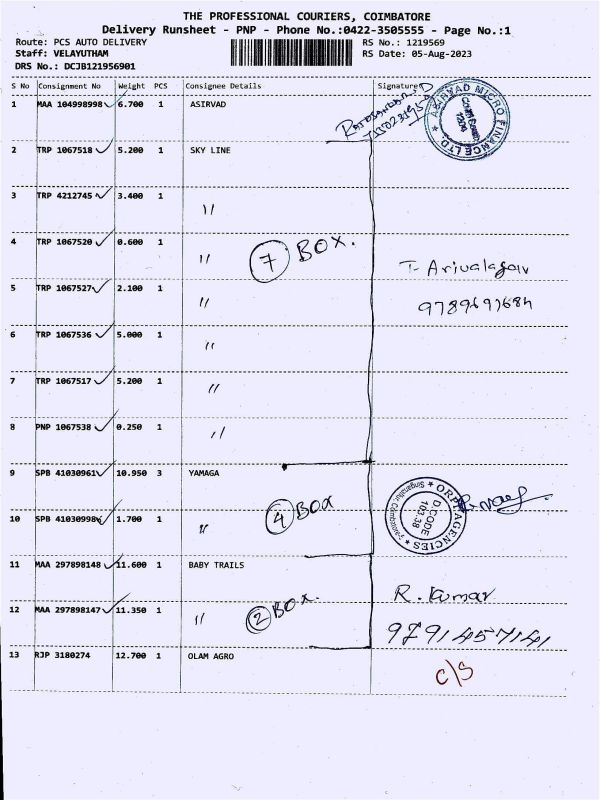 THE PROFESSIONAL COURIERS, COIMBATORE
Delivery Runsheet - PNP - Phone No.:0422-3505555 - Page No.:1
Route: PCS AUTO DELIVERY RS No.: 1219569
Staff: VELAYUTHAM RS Date: 05-Aug-2023
DRS No.: DCJB121956901
S No Consignment No Weight PCS Consignee Details Signature
1 MAA 104998998 6.700 1 ASIRVAD
ASIRVAD MICRO FINANCE LTD.
2 TRP 1067518 5.200 1 SKY LINE
3 TRP 4212745 3.400 1 "
4 TRP 1067520 0.600 1 " 7 BOX.
T. Arivalagan
5 TRP 1067527 2.100 1 "
6 TRP 1067536 5.000 1 "
7 TRP 1067517 5.200 1 "
8 PNP 1067538 0.250 1 "
9 SPB 41030961 10.950 3 YAMAGA
ORP AGENCIES
Singanallur, Coimbatore
D.CODE
103.38
10 SPB 41030998 1.700 1 " 4 BOX
11 MAA 297898148 11.600 1 BABY TRAILS
R. Kumar
12 MAA 297898147 11.350 1 " 2 BOX.
9791457141
13 RJP 3180274 12.700 1 OLAM AGRO
C/S